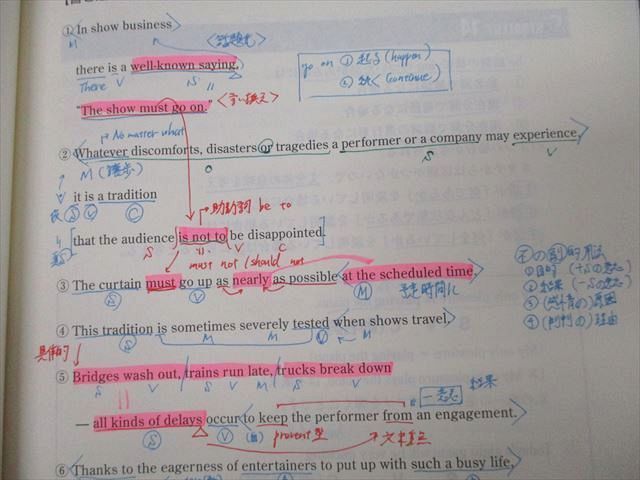 ① In show business
M
<話題化>
there is a well-known saying,
There V S
go on ① 起る (happen)
② 続く (continue)
"The show must go on."
<言い換え>
No matter what
② Whatever discomforts, disasters or tragedies a performer or a company may experience,
M (譲歩) O S V
it is a tradition
仮 S V C
助動詞 be to
that the audience is not to be disappointed.
真 S V C
must not / should not
③ The curtain must go up as nearly as possible at the scheduled time.
S V M 予定時間に
の副詞的用法
① 目的
② 結果
③ (感情の) 原因
④ (判断の) 理由
④ This tradition is sometimes severely tested when shows travel.
S M V M
具体的
⑤ Bridges wash out, trains run late, trucks break down
S V S V M S V
結果
— all kinds of delays occur to keep the performer from an engagement.
S V prevent型
⑥ Thanks to the eagerness of entertainers to put up with such a busy life,